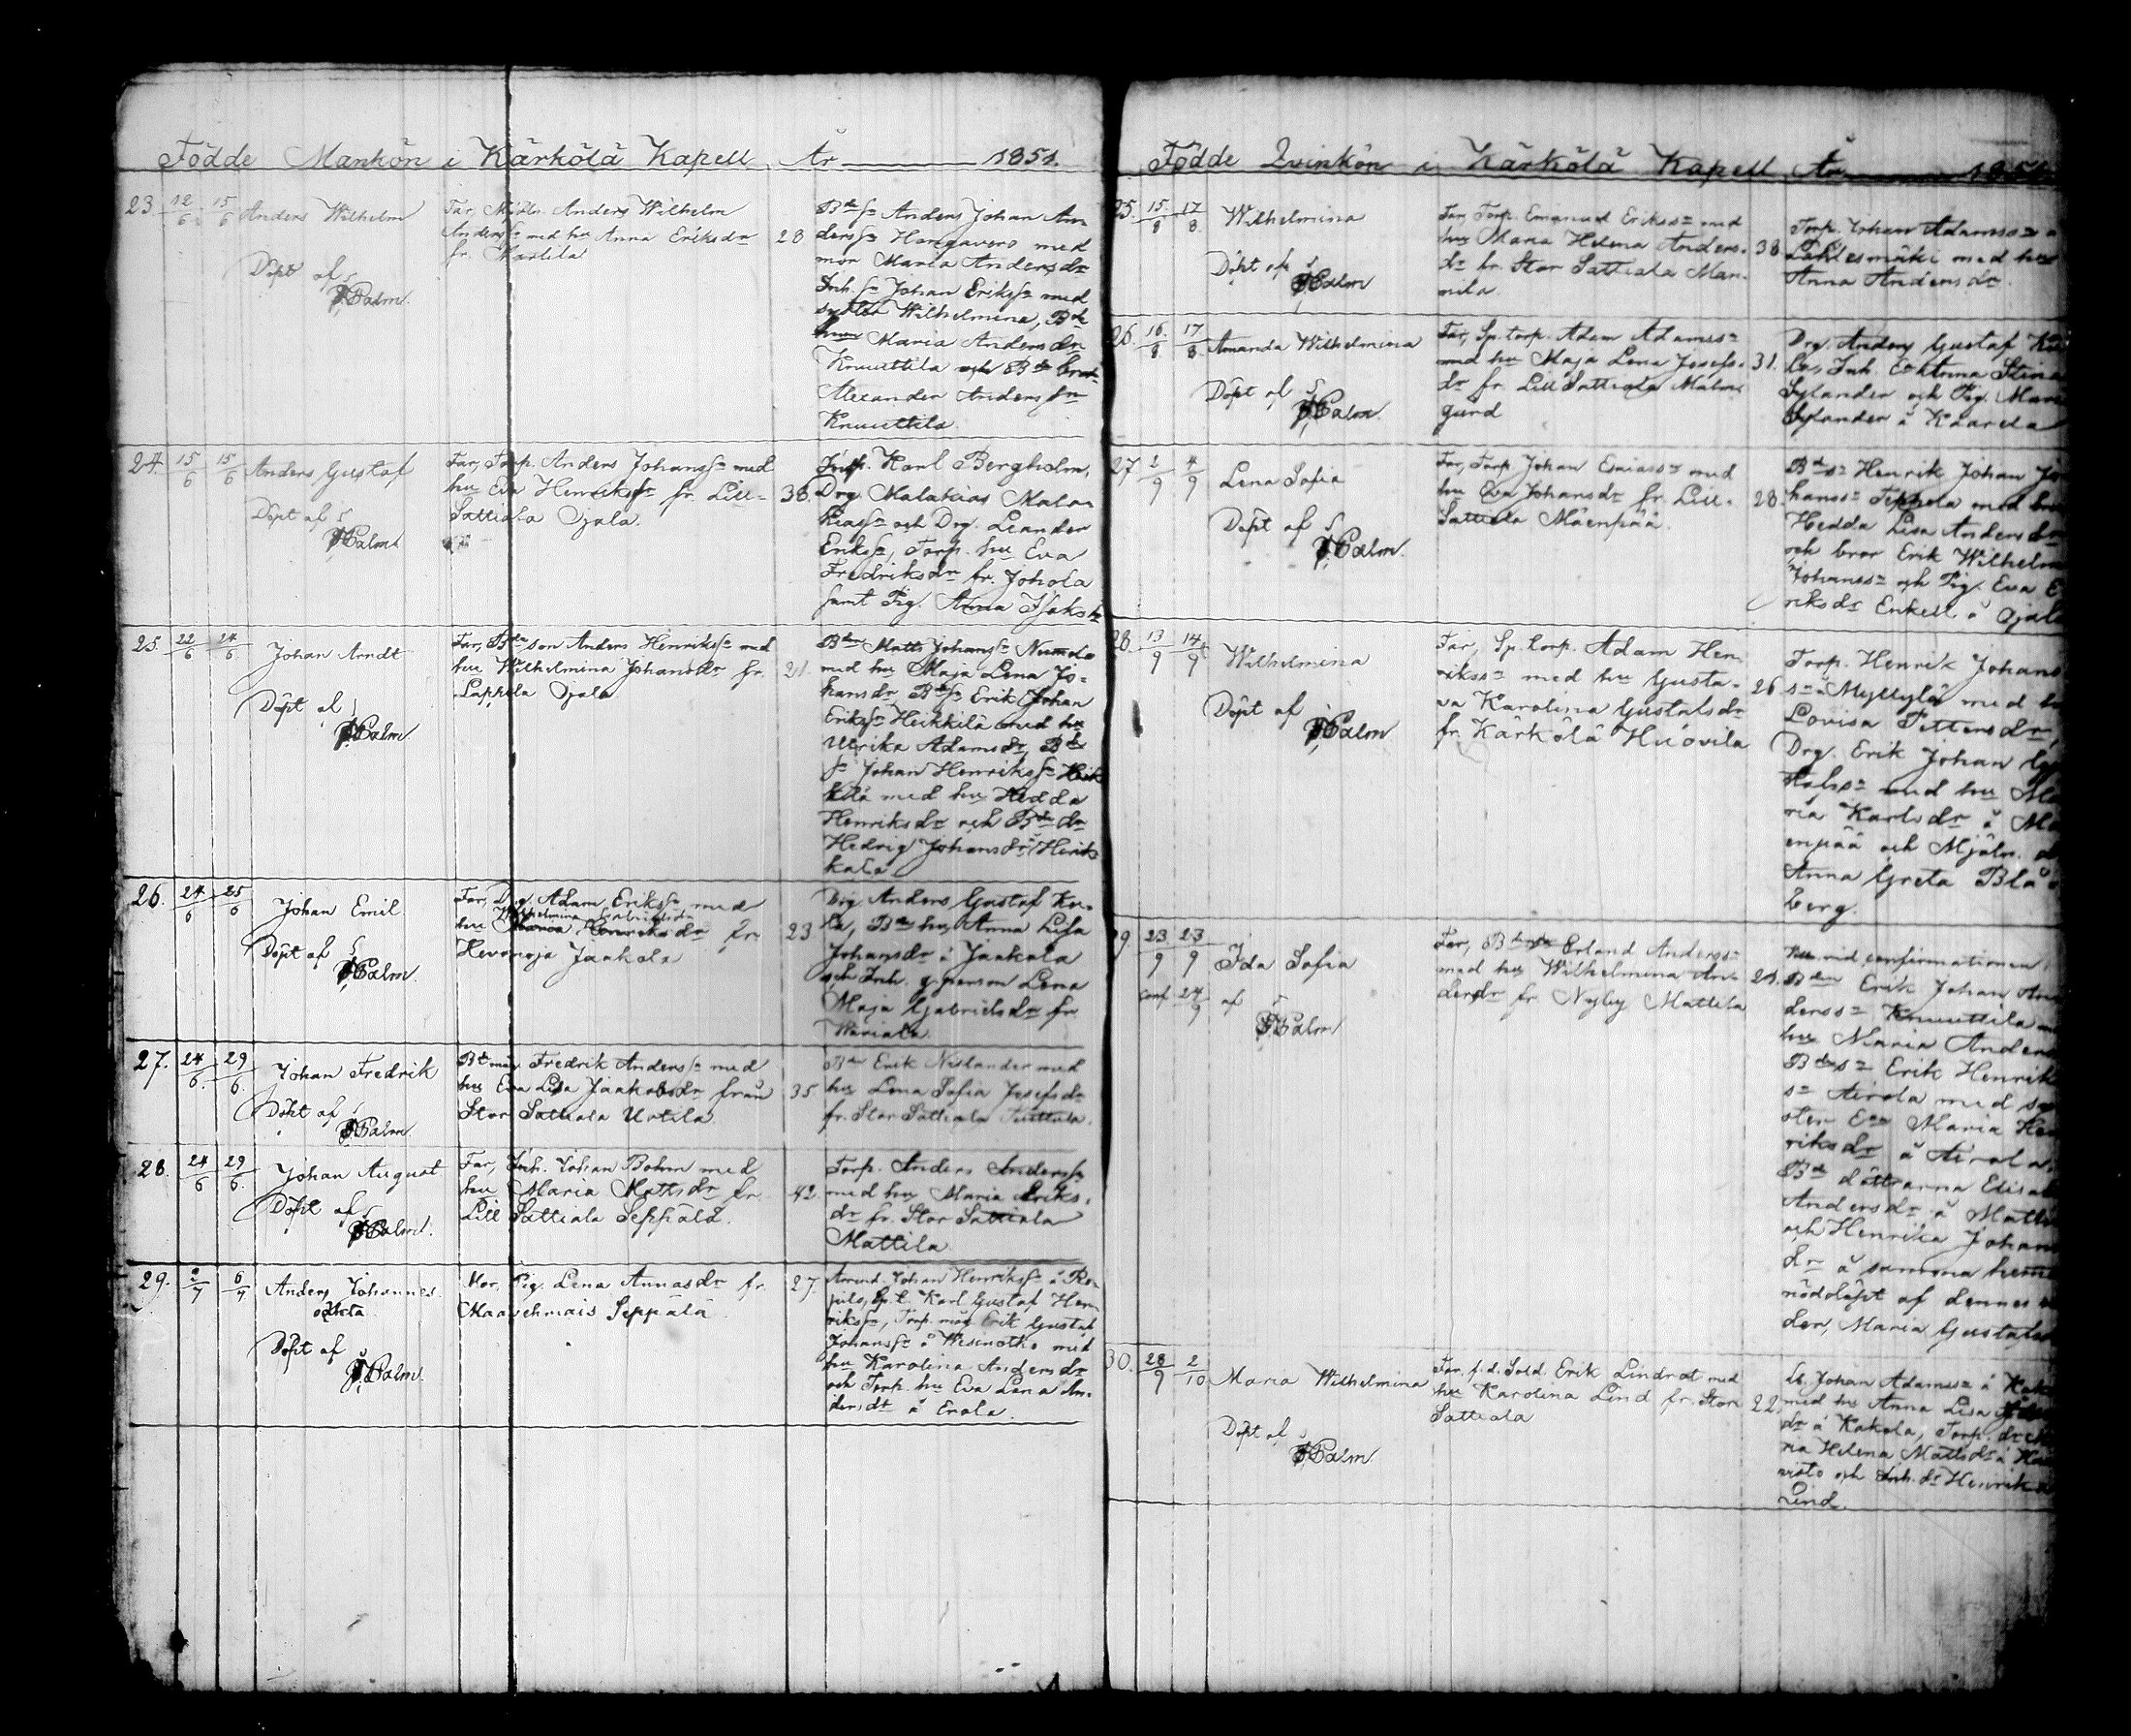 Födde Mankön i Kärkölä Kapell År 1851.
23. 12/6 15/6 Anders Wilhelm
Döpt af
Palm.
Far, Mjöln. Anders Wilhelm
Anderss. med hu Anna Eriksdr 28
fr. Marttila
Bdes. Anders Johan An-
derss. med
mor Maria Andersdr
Inh. s. Johan Erikss. med
syster Wilhelmina, Bde
Maria Andersdr
Knuuttila och Bde bror
Alexander Anderss.
Knuuttila
24. 15/6 15/6 Anders Gustaf
Döpt af
Palm
Far, Torp. Anders Johanss. med
hu Eva Henriksdr fr. Lill- 38.
Sattiala Ojala.
Karl Bergholm,
Drg. Malakias Mala-
kiass. och Drg. Leander
Erikss., Torp. hu Eva
Fredriksdr fr. Johola
samt Pig. Anna Isaksdr
25. 22/6 24/6 Johan Arndt
Döpt af
Palm.
Far, Bdeson Anders Henrikss. med
hu Wilhelmina Johansdr fr. 21.
Lappola Ojala
Bden Matts Johanss.
med hu Maja Lena Jo-
hansdr, Bdes. Erik Johan
Erikss. Heikkilä med hu
Ulrika Adamsdr, Bde
s. Johan Henrikss. Heik
kilä med hu Hedda
Henriksdr och Bde dr
Hedvig Johansdr
26. 24/6 25/6 Johan Emil
Döpt af
Palm.
Far, Drg. Adam Erikss. med
Wilhelmina Gabrielsdr
hu Maria Henriksdr fr. 23
Hevonoja Jaakola
Drg. Anders Gustaf Ku-
la, Bde hu Anna Lisa
Johansdr i Jaakola
och Inh. q.person Lena
Maja Gabrielsdr fr.
27. 24/6. 29/6. Johan Fredrik
Döpt af
Palm
Bde måg Fredrik Anderss. med
hu Eva Lisa Jaakobsdr från 35
Stor Sattiala Urtila
Bde Erik Nislander med
hu Lena Sofia Josefsdr
fr. Stor Sattiala Tuttula.
28. 24/6 29/6. Johan August
Döpt af
Palm.
Far, Inh. Johan Bohm med
hu Maria Mattsdr fr. 42.
Lill Sattiala Seppälä.
Torp. Anders Anderss.
med hu Maria Eriks-
dr fr. Stor Sattiala
Mattila.
29. 2/7 6/7 Anders Johannes
oäkta
Döpt af
Palm.
Mor, Pig. Lena Annasdr fr. 27.
Maavehmais Seppälä
Arrend. Johan Henrikss. å
Karl Gustaf Hen-
rikss., Torp. måg Erik Gustaf
Johanss. å med
hu Karolina Andersdr
och Torp. hu Eva Lena An-
dersdr å Erola.
Födde Qvinkön i Kärkölä Kapell År 1851.
25. 15/8 17/8 Wilhelmina
Döpt af
Palm
Far, Torp. Emanuel Erikss. med
hu Maria Helena Anders- 38
dr fr. Stor Sattiala Man-
nila
Torp. Johan Adamss. å
Lähtesmäki med hu
Anna Andersdr.
26. 16/8 17/8. Amanda Wilhelmina
Döpt af
Palm.
Far, Sp.torp. Adam Adamss.
med hu Maja Lena Josefs- 31.
dr fr. Lill Sattiala Malm-
gård
Drg. Anders Gustaf
Inh. Anna Stina
Sylander och Pig. Maria
Sylander å
27 2/9 4/9 Lena Sofia
Döpt af
Palm.
Far, Torp. Johan Esaiass. med
hu Eva Johansdr fr. Lill- 28.
Sattiala Mäenpää.
Bdes. Henrik Johan Jo-
hanss. Teppola med
Hedda Lisa Andersdr
och bror Erik Wilhelm
Johanss. och Pig. Eva E-
riksdr Enkell å Ojala
28. 13/9 14/9 Wilhelmina
Döpt af
Palm
Far, Sp.torp. Adam Hen-
rikss. med hu Gusta- 26
va Karolina Gustafsdr
fr. Kärkölä Huovila
Torp. Henrik Johans
s. å Myllylä med hu
Lovisa Pettersdr,
Drg. Erik Johan
med hu Ma
ria Karlsdr å Mä
enpää och Mjöln.
Anna Greta Blå
berg.
29 23/9 23/9 Ida Sofia
conf. 24/9 af
Palm
Far, Bdeson Erland Anderss.
med hu Wilhelmina An- 21.
dersdr fr. Nyby Mattila
vid confirmationen,
Bden Erik Johan An
derss. Knuuttila
hu Maria Anders
Bdes. Erik Henrik
s. Airola med sy
ster Eva Maria Hen
riksdr å Airola
Bde döttrarna Elisab
Andersdr å Matti
och Henrika Johan
dr å samma hemm
nöddöpt af dennes
der, Maria Gustafs
30. 28/9 2/10 Maria Wilhelmina
Döpt af
Palm.
Far, f.d. Sold. Erik Lindrot med
hu Karolina Lind fr. Stor 22.
Sattiala
Johan Adamss. å
med hu Anna Lisa
dr å Kakola, Torp. dr Ma
ria Helena Mattsdr å
visto och Inh. dr Henrika
Lind.